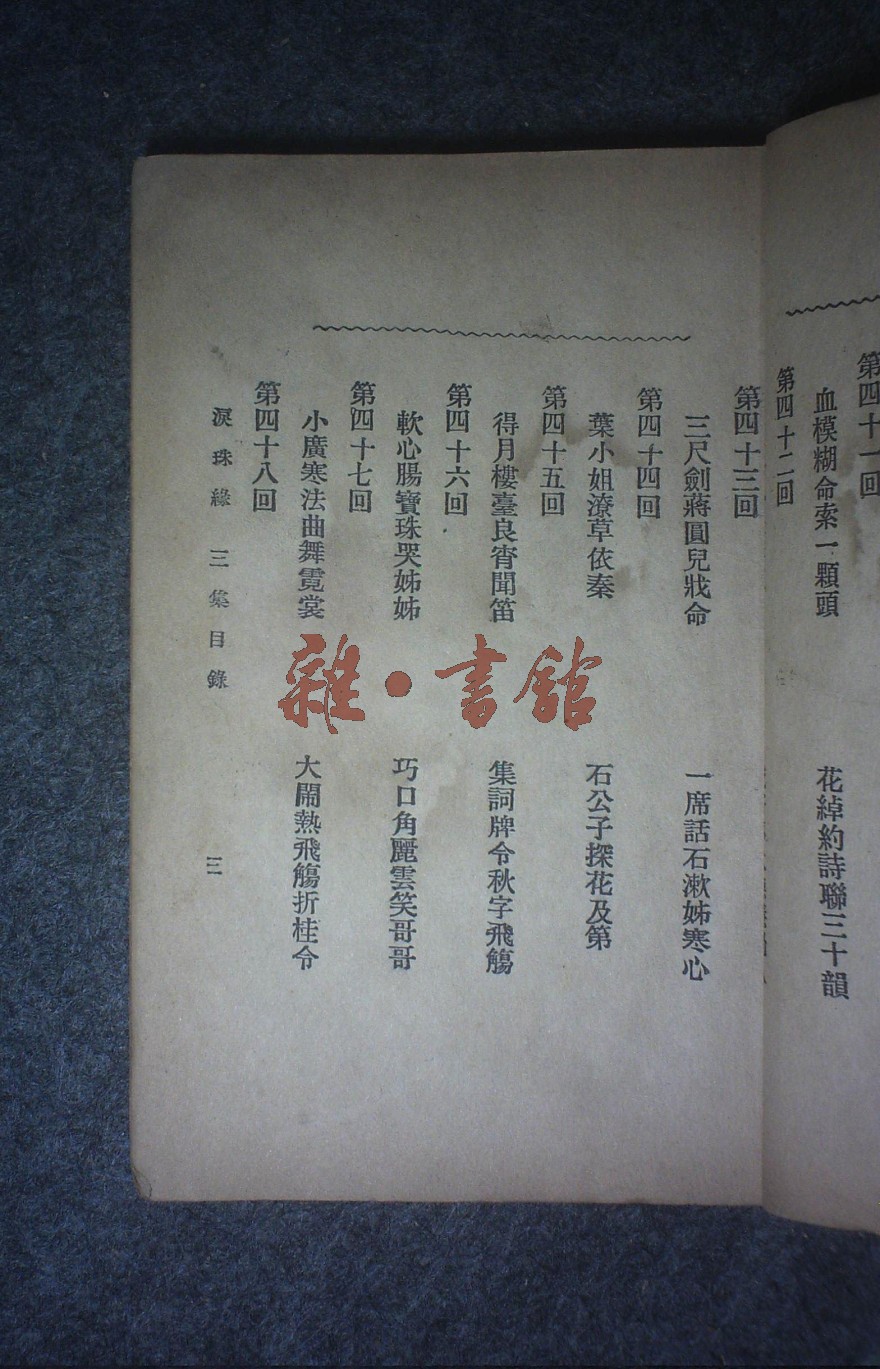 第四十一回
血模糊命索一顆頭　花綽約詩聯三十韻
第四十二回
第四十三回
三尺劍蔣圓兒戕命　一席話石漱姊寒心
第四十四回
葉小姐潦草依秦　石公子探花及第
第四十五回
得月樓臺良宵聞笛　集詞牌令秋字飛觴
第四十六回
軟心腸寶珠哭姊姊　巧口角麗雲笑哥哥
第四十七回
小廣寒法曲舞霓裳　大鬧熱飛觴折桂令
第四十八回
淚珠緣　三集目錄　三
雜·書館